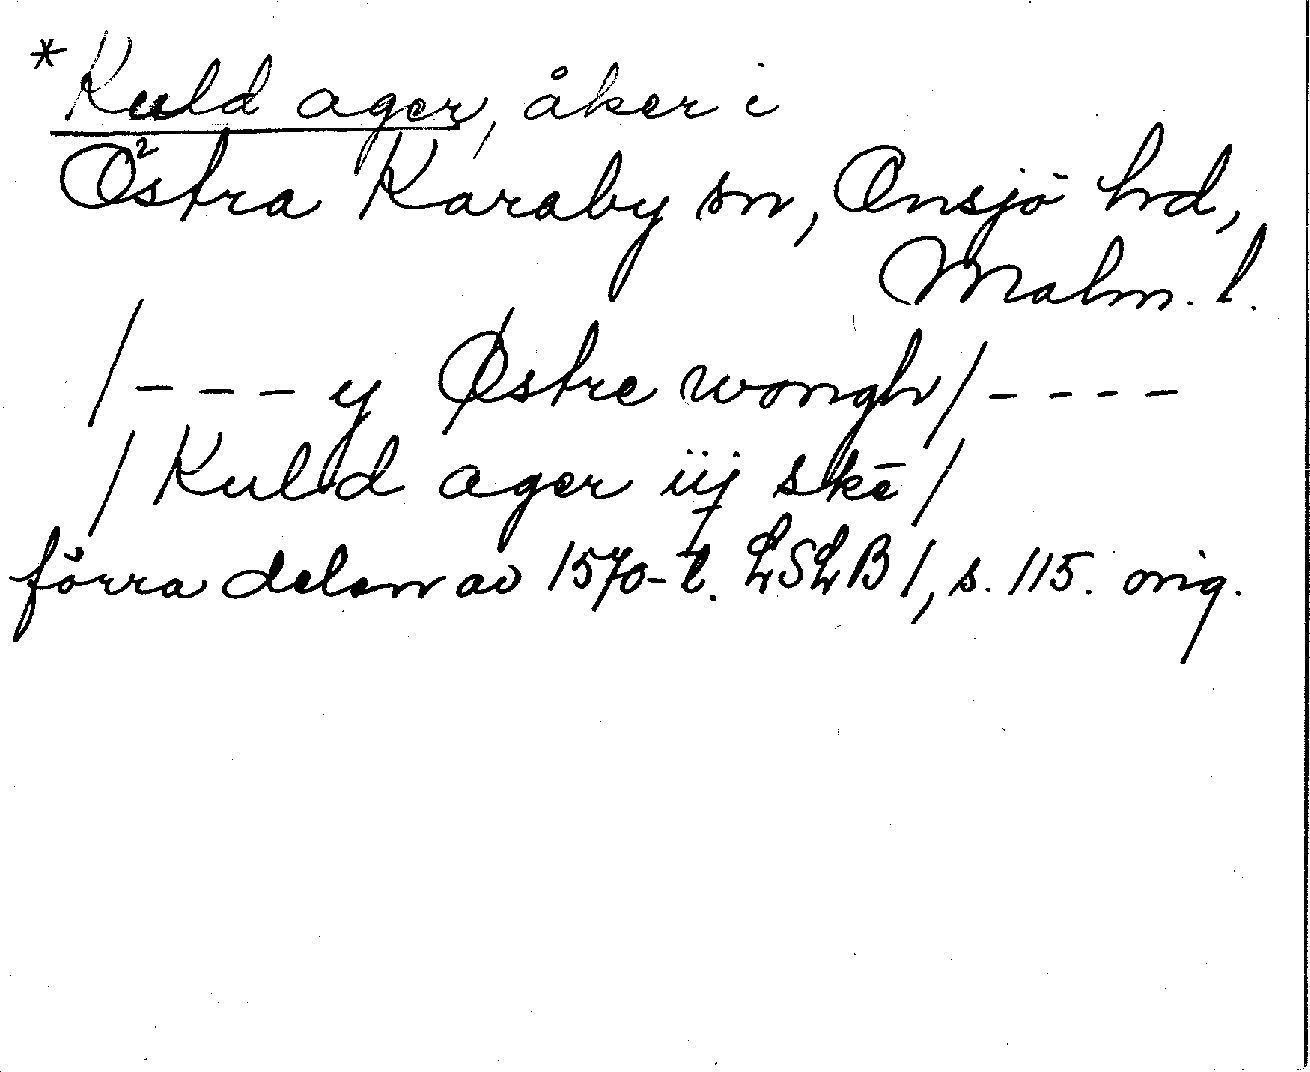 *Kuld ager, åker i
Östra Karaby sn, Onsjö hd,
Malm. l.
/ - - - y Østre wongh / - - - -
/ Kuld ager iij skē /
förra delen av 1570-t. LSLB 1, s. 115. orig.